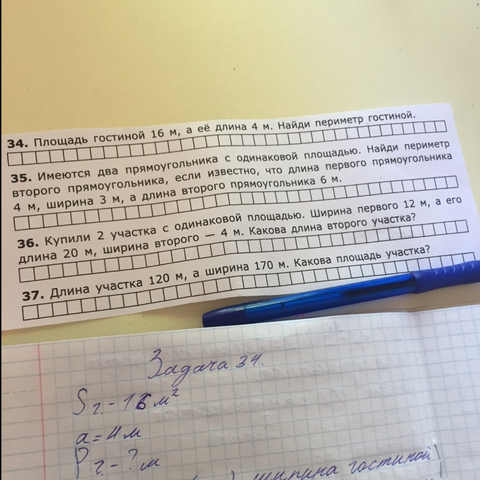 34. Площадь гостиной 16 м, а её длина 4 м. Найди периметр гостиной.
35. Имеются два прямоугольника с одинаковой площадью. Найди периметр
второго прямоугольника, если известно, что длина первого прямоугольника
4 м, ширина 3 м, а длина второго прямоугольника 6 м.
36. Купили 2 участка с одинаковой площадью. Ширина первого 12 м, а его
длина 20 м, ширина второго — 4 м. Какова длина второго участка?
37. Длина участка 120 м, а ширина 170 м. Какова площадь участка?
Задача 34.
S г. - 16 м²
a = 4 м
P г. - ? м
ширина гостиной